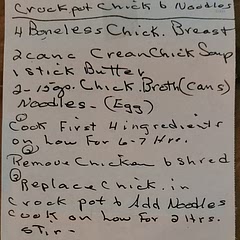 Crockpot Chick & Noodles
4 Boneless Chick. Breast
2 cans Cream Chick Soup
1 stick Butter
2-15oz. Chick. Broth (cans)
Noodles - (Egg)
① Cook First 4 ingredients
on Low For 6-7 Hrs.
② Remove Chicken & Shred
③ Replace Chick. in
Crock pot & Add Noodles
Cook on Low For 2 Hrs.
Stir -